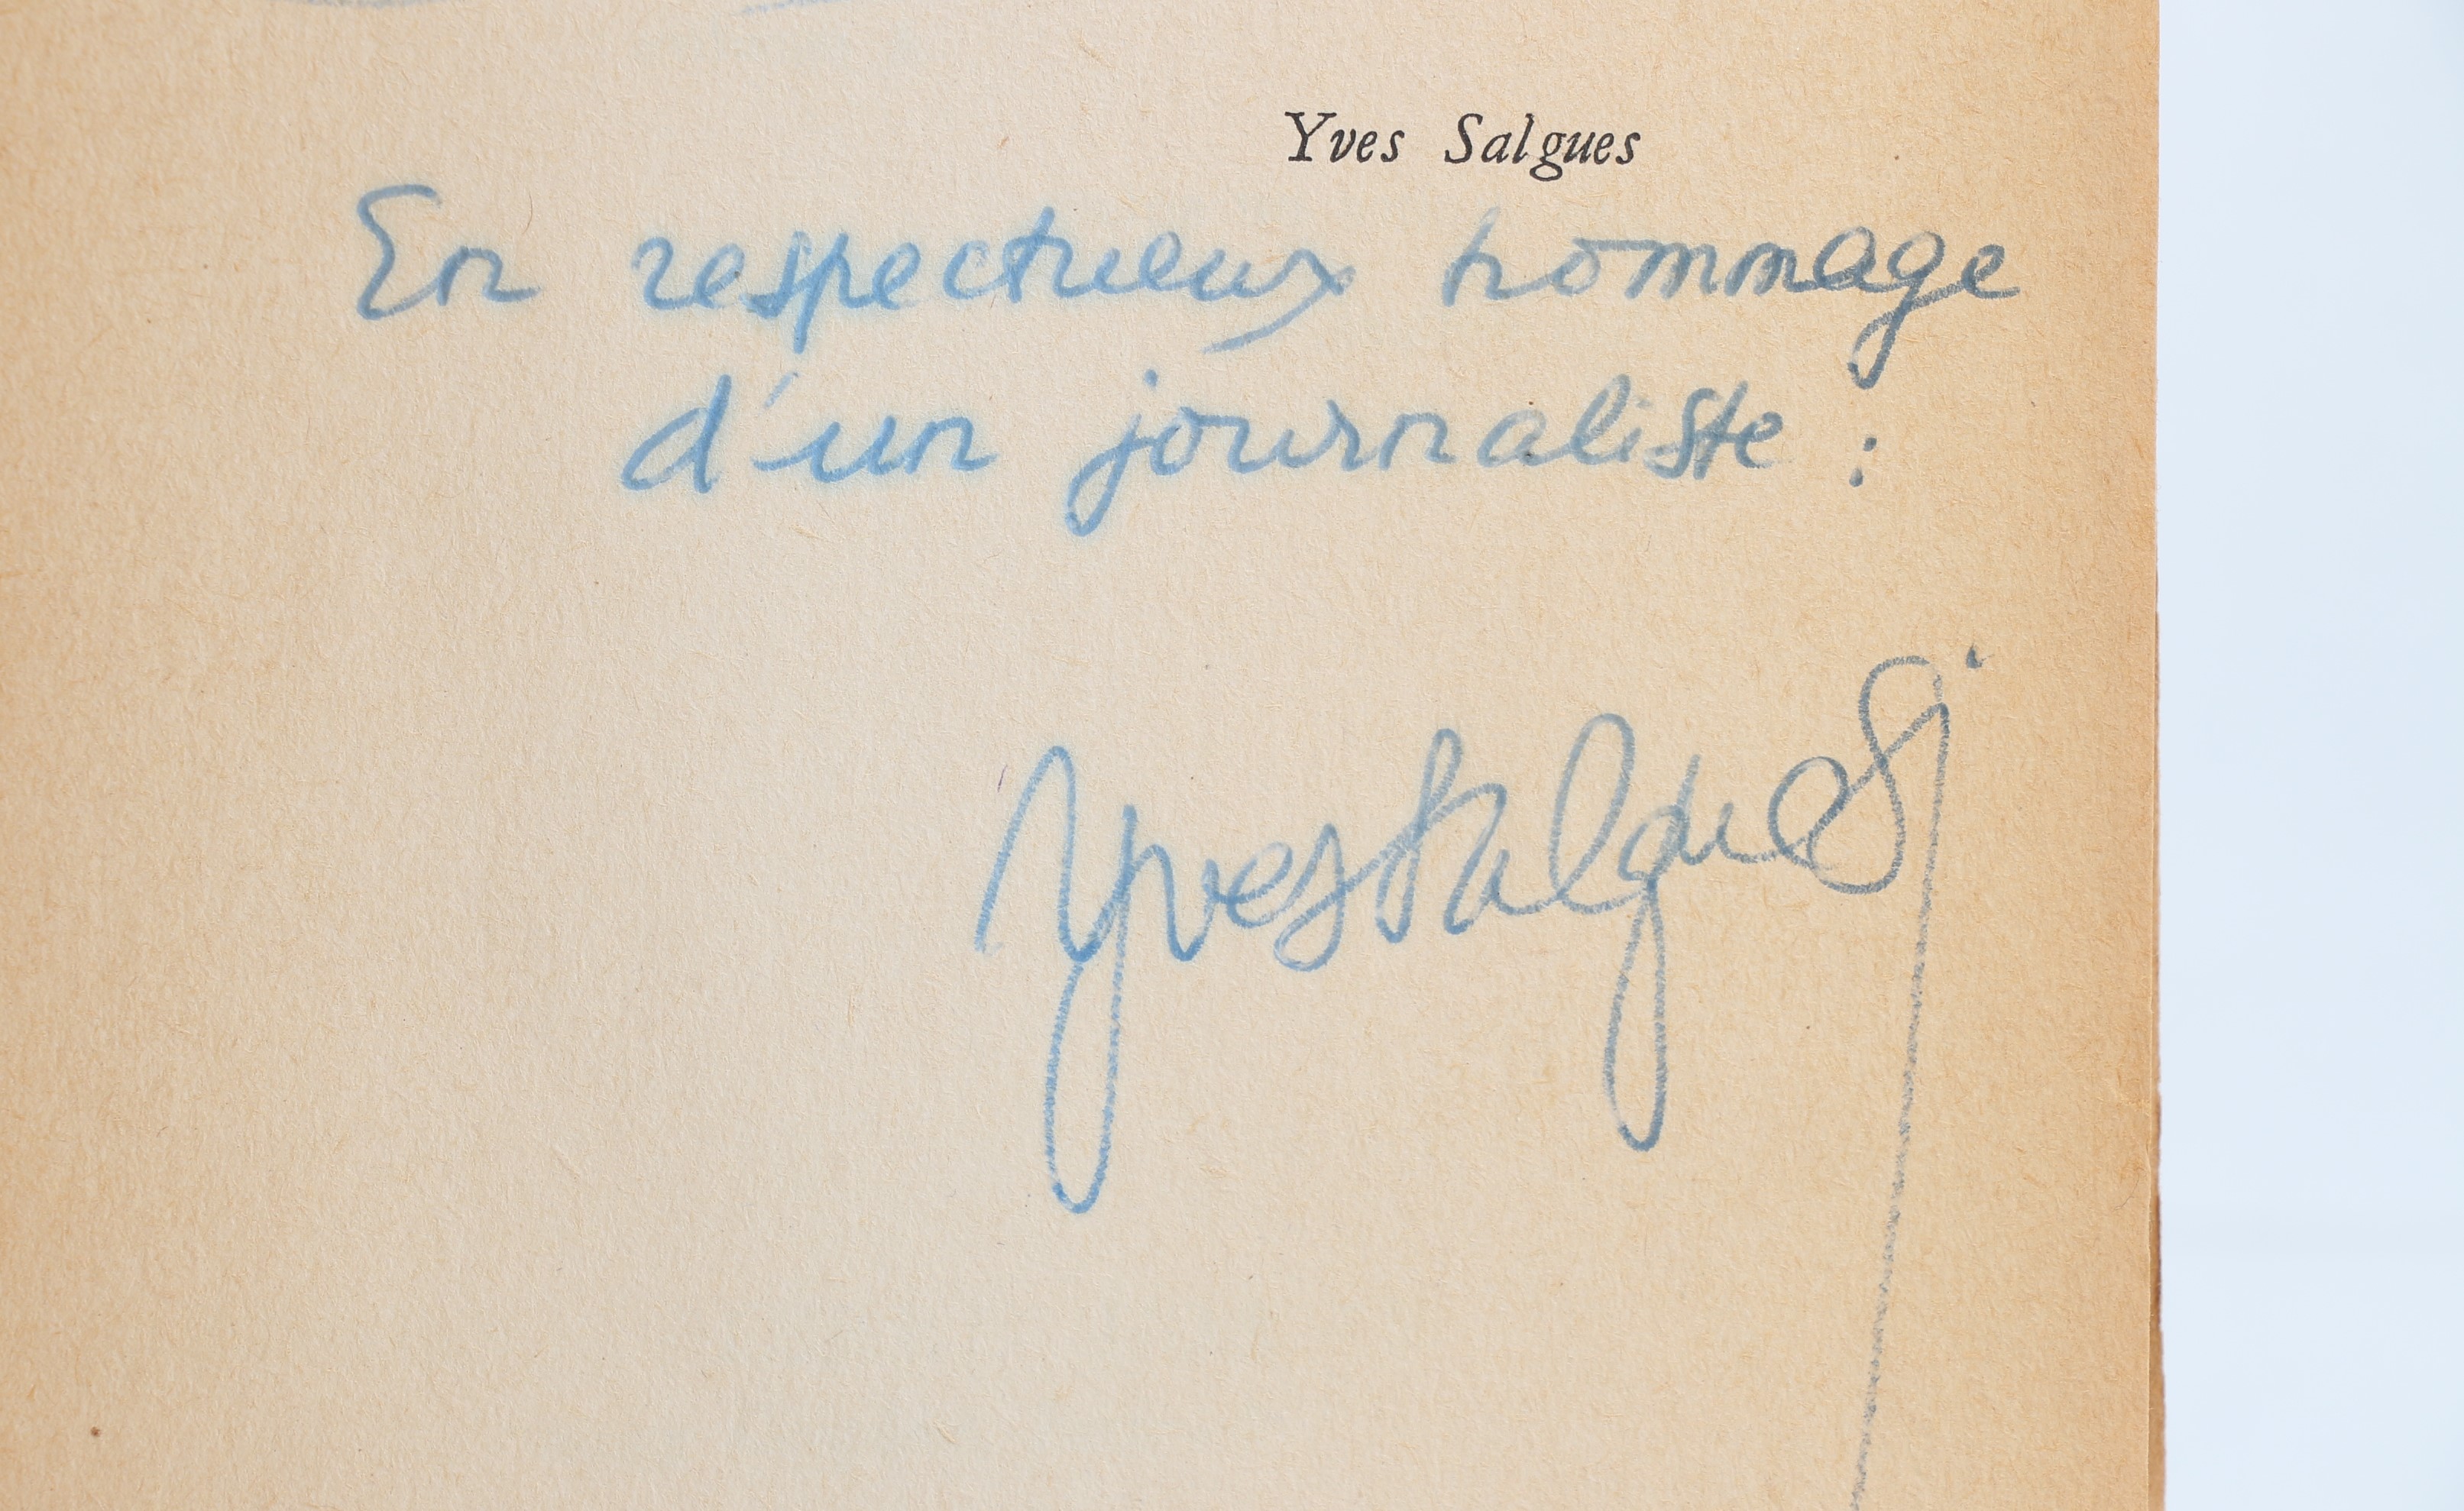 Yves Salgues
En respectueux hommage
d'un journaliste :
Yves Salgues